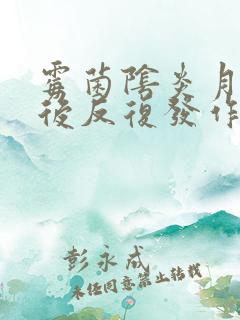 霉菌陰炎月
後反復發作
彭永成
未经同意禁止转载